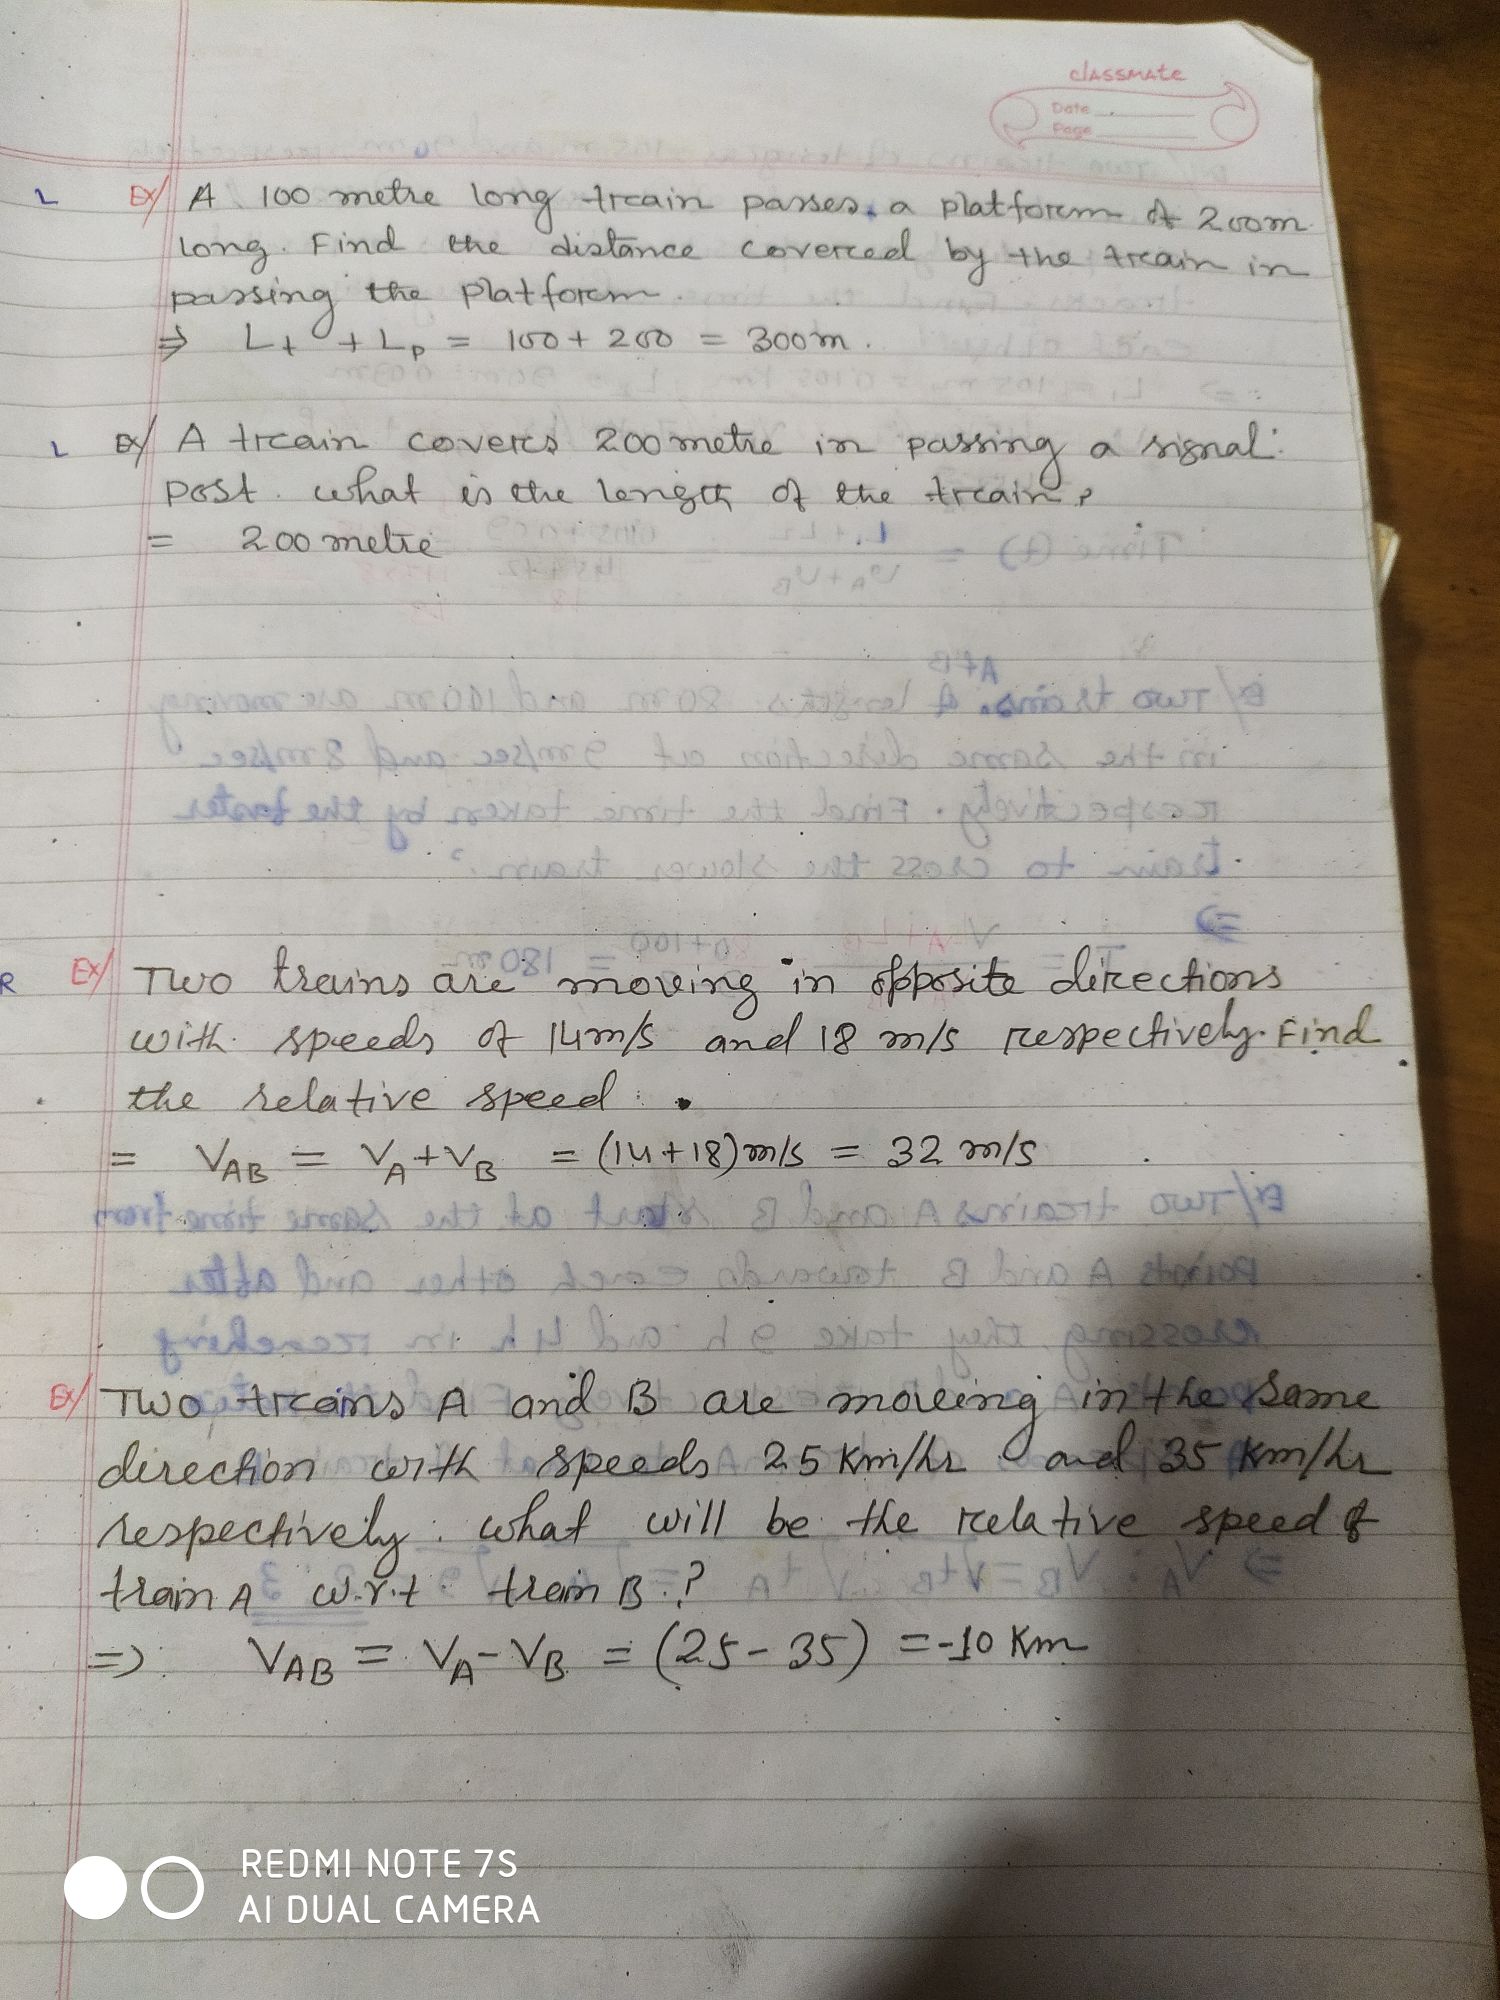 classmate
Date
Page
L Ex/ A 100 metre long train passes a platform of 200m
long. Find the distance covered by the train in
passing the platform.
⇒ Lt + Lp = 100 + 200 = 300m.
L Ex/ A train covers 200 metre in passing a signal
post. what is the length of the train?
= 200 metre
R Ex/ Two trains are moving in opposite directions
with speeds of 14m/s and 18 m/s respectively. Find
the relative speed.
= VAB = VA+VB = (14+18)m/s = 32 m/s
Ex/ Two trains A and B are moving in the same
direction with speeds 25 Km/hr and 35 Km/hr
respectively. what will be the relative speed of
train A w.r.t train B.?
⇒ VAB = VA-VB = (25-35) = -10 Km
REDMI NOTE 7S
AI DUAL CAMERA